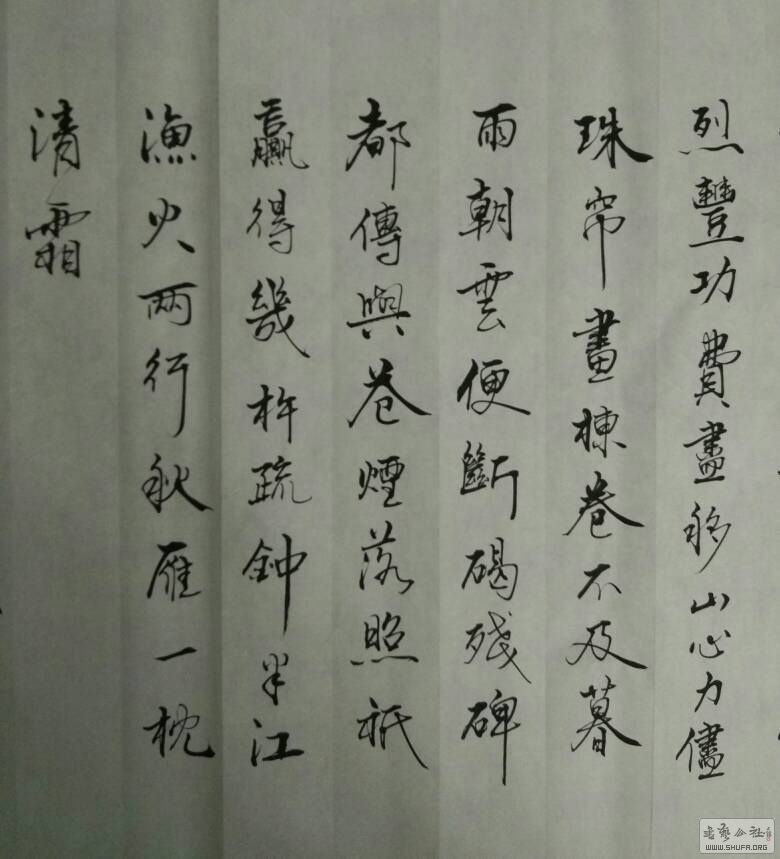 烈豐功費盡移山心力儘
珠帘畫棟卷不及暮
雨朝雲便斷碣殘碑
都傳與苍煙落照祇
贏得幾杵疏鐘半江
漁火兩行秋雁一枕
清霜
書藝公社
WWW.SHUFA.ORG